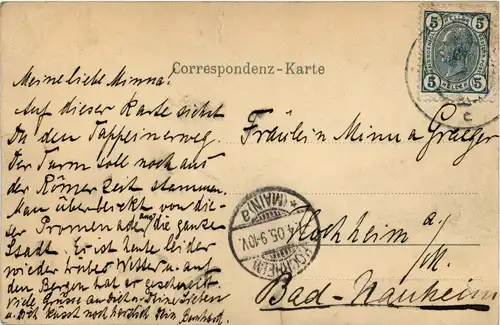 Correspondenz-Karte
5 5
5 5
Meine liebe Minna!
Auf dieser Karte siehst
Du den Tappeinerweg.
Der Turm soll noch aus
der Römerzeit stammen.
Man überblickt von die-
ser Promenade aus die ganze
Stadt. Er ist heute leider
wieder trüber Wetter u. auf
den Bergen hat er geschneit
Viele Grüsse an dich u. Deine Lieben
u. Dich küsst noch herzlich Dein
Fräulein Minna Graeger
Hochheim a/M.
Bad-Nauheim
HOCHHEIM
4.05.9-10V.
* (MAIN) a